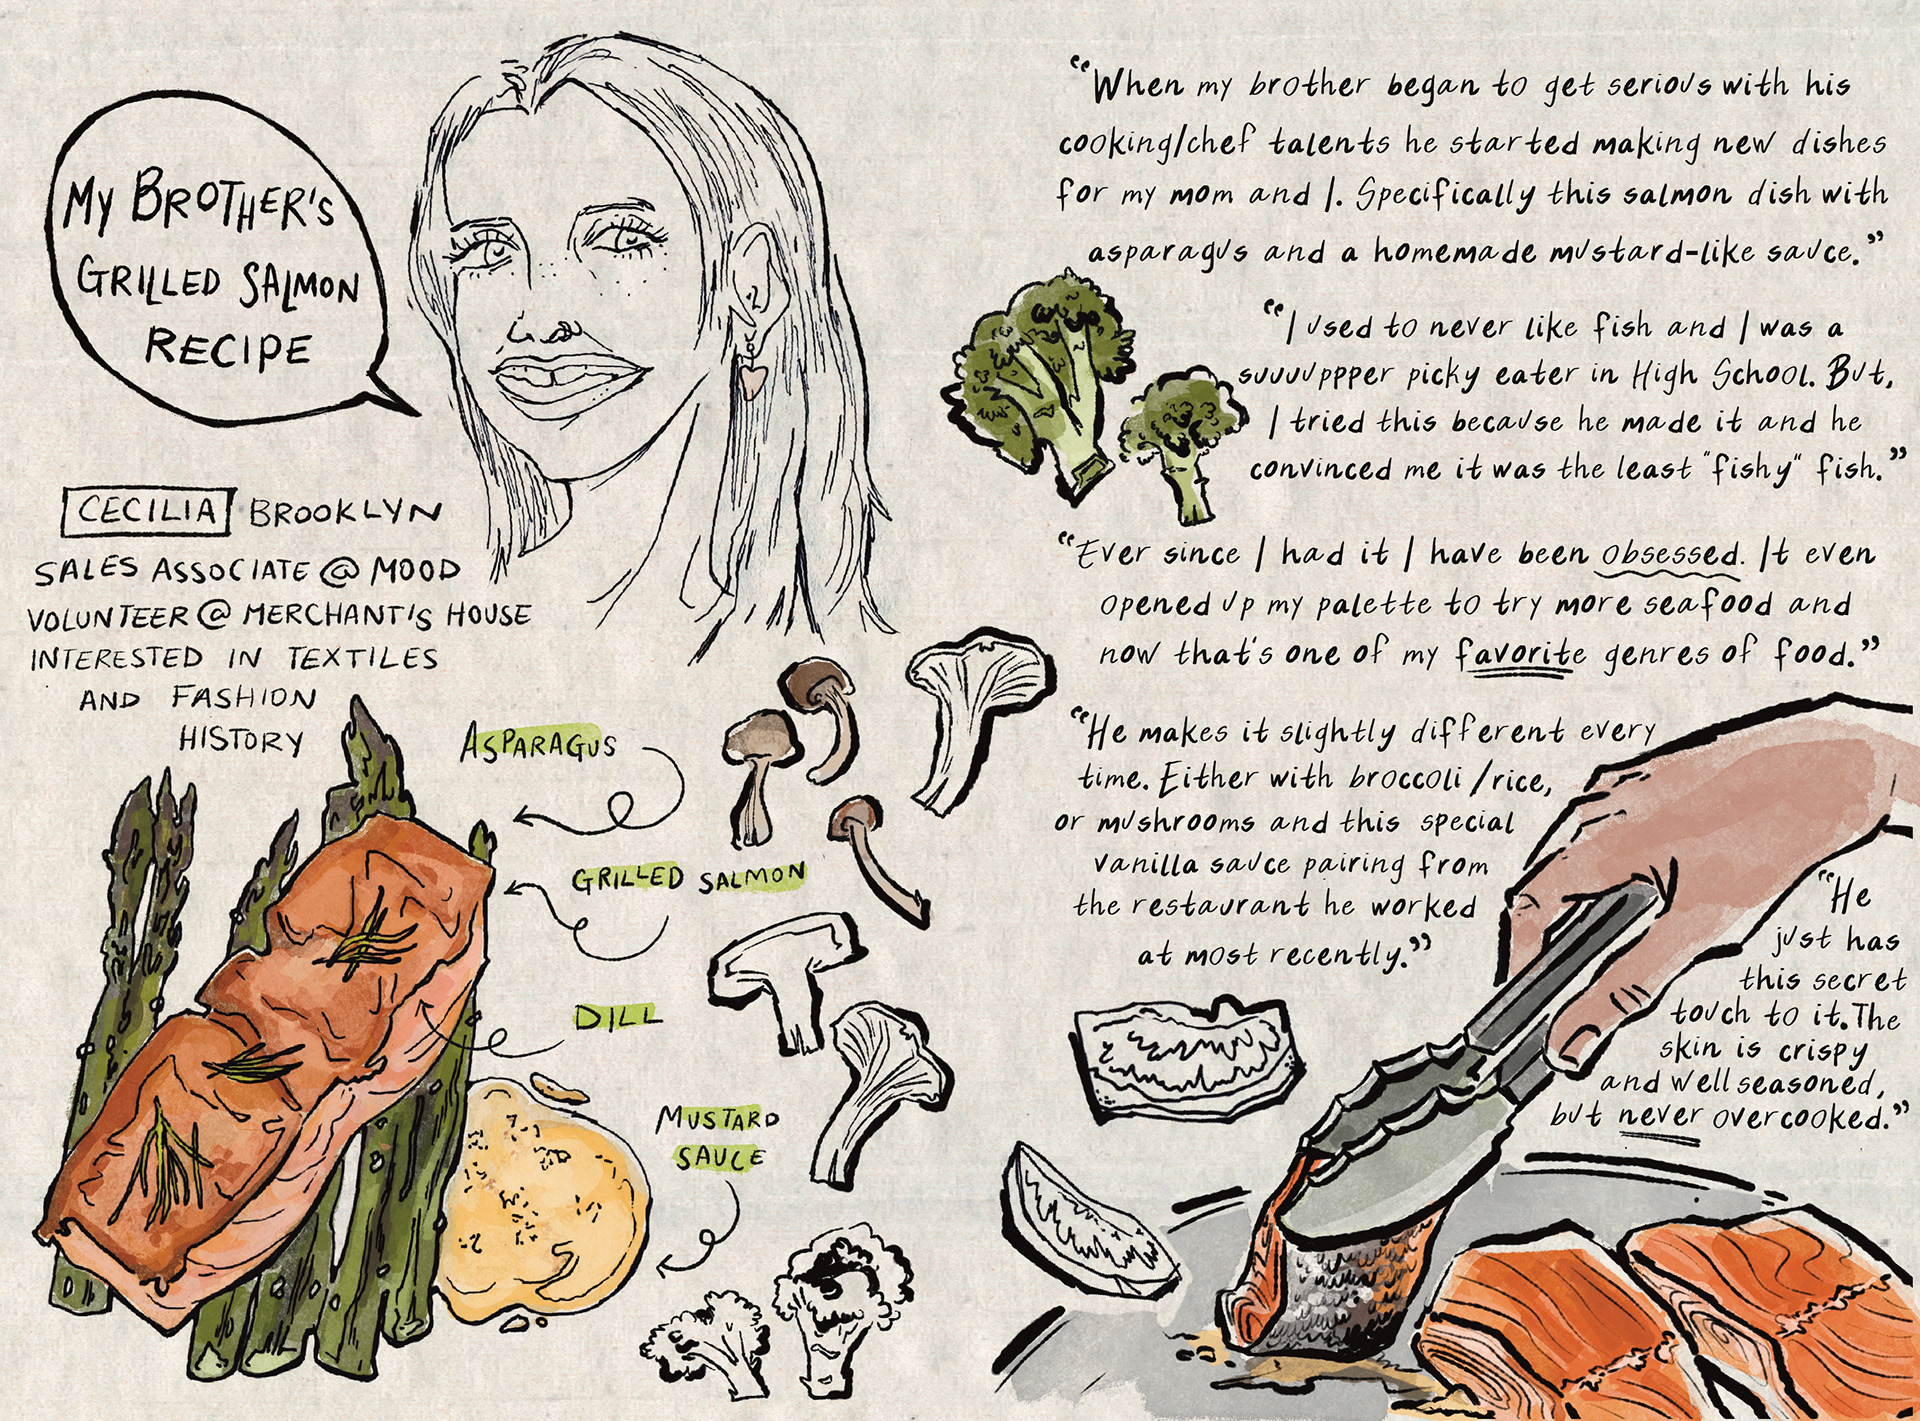 My Brother's
Grilled Salmon
Recipe
Cecilia Brooklyn
Sales Associate @ Mood
Volunteer @ Merchant's House
Interested in Textiles
and Fashion
History
Asparagus
Grilled Salmon
Dill
Mustard
Sauce
“When my brother began to get serious with his
cooking/chef talents he started making new dishes
for my mom and I. Specifically this salmon dish with
asparagus and a homemade mustard-like sauce.”
“I used to never like fish and I was a
suuuuppper picky eater in High School. But,
I tried this because he made it and he
convinced me it was the least "fishy" fish.”
“Ever since I had it I have been obsessed. It even
opened up my palette to try more seafood and
now that's one of my favorite genres of food.”
“He makes it slightly different every
time. Either with broccoli/rice,
or mushrooms and this special
vanilla sauce pairing from
the restaurant he worked
at most recently.”
“He
just has
this secret
touch to it. The
skin is crispy
and well seasoned,
but never overcooked.”